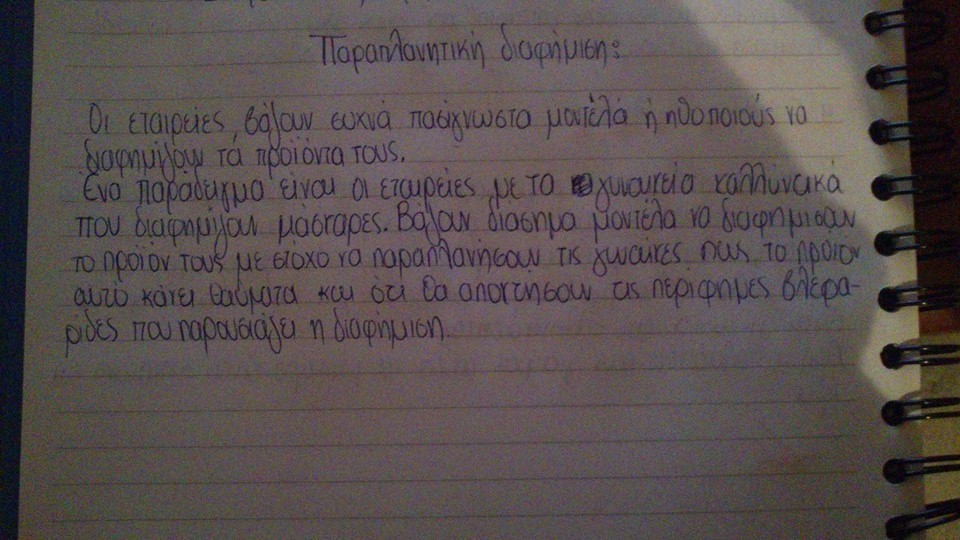 Παραπλανητική διαφήμιση:
Οι εταιρείες, βάζουν συχνά πασίγνωστα μοντέλά ή ηθοποιούς να
διαφημίζουν τά προϊόντα τους.
Ένα παράδειγμα είναι οι εταιρείες με τα γυναικεία καλλυντικά
που διαφημίζουν μάσκαρες. Βάζουν διάσημα μοντέλα να διαφημίσουν
το προϊόν τους με στόχο να παραπλανήσουν τις γυναίκες πως το προϊον
αυτό κάνει θαύματα και ότι θα αποκτήσουν τις περίφημες βλεφα-
ρίδες που παρουσιάζει η διαφήμιση.